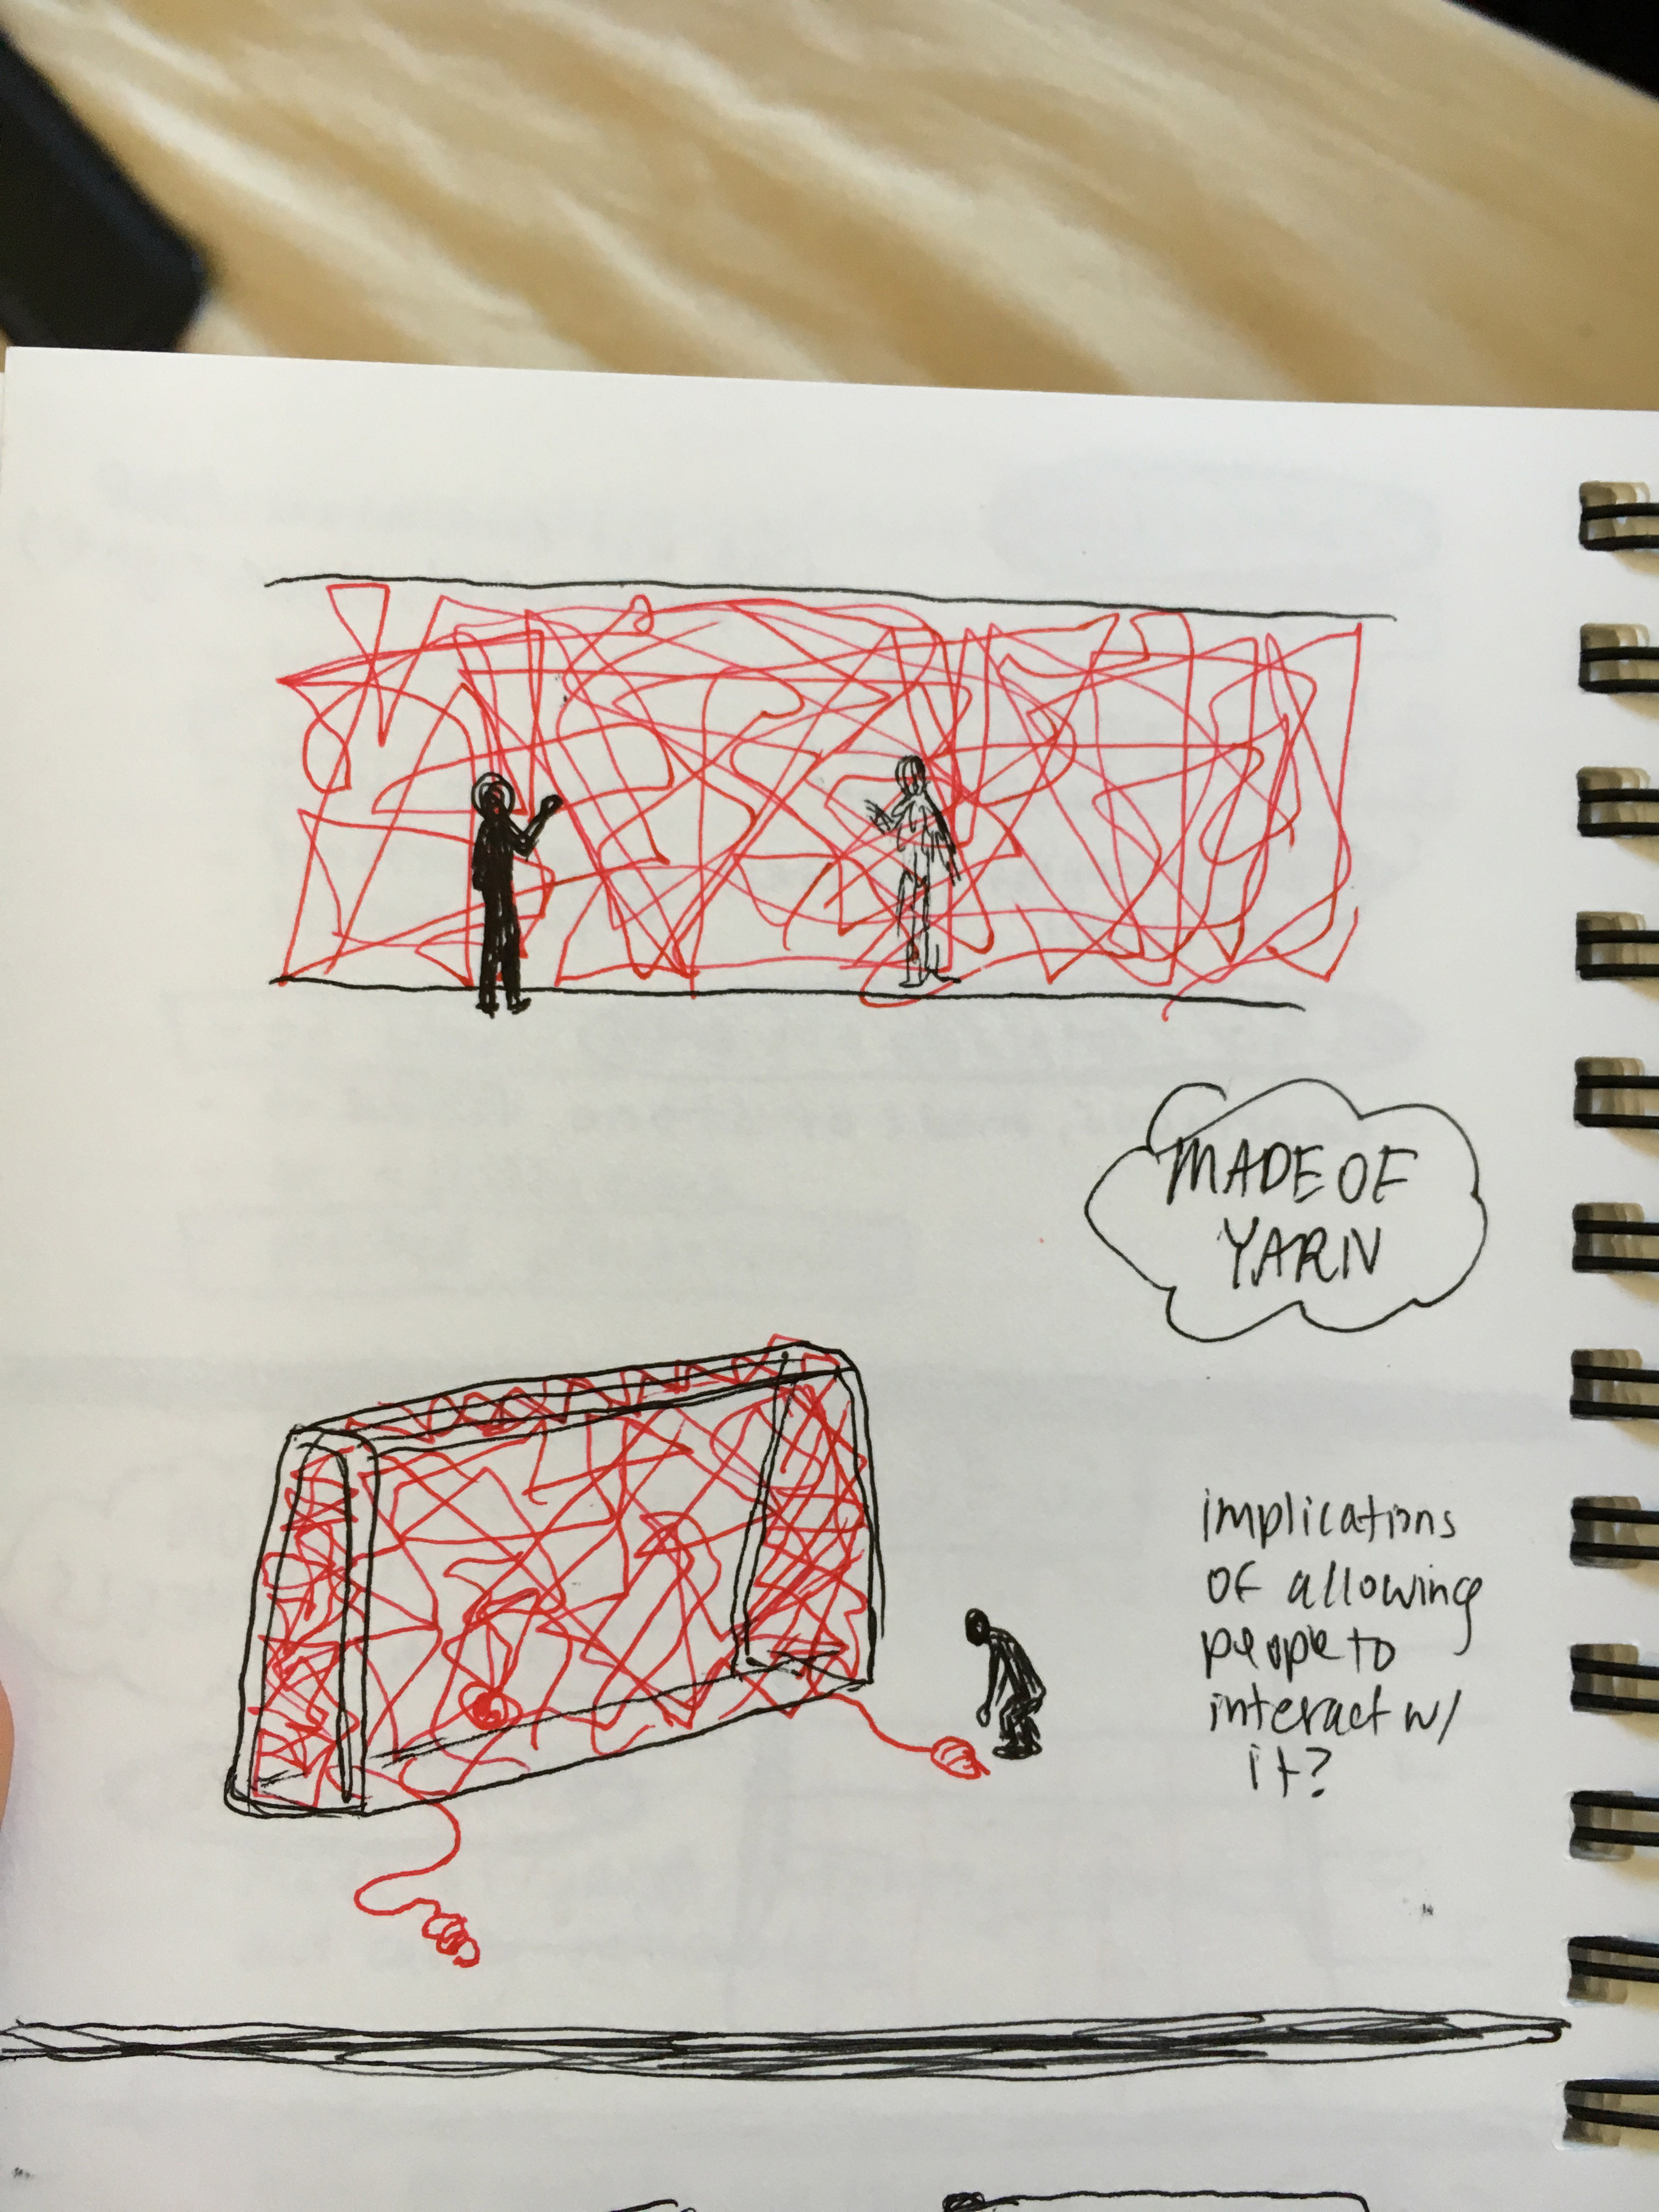 MADE OF
YARN
implications
of allowing
people to
interact w/
it?